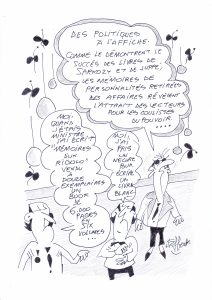 DES POLITIQUES
À L'AFFICHE.
COMME LE DÉMONTRENT LE
SUCCÈS DES LIVRES DE
SARKOZY ET DE JUPPÉ,
LES MÉMOIRES DE
PERSONNALITÉS RETIRÉES
DES AFFAIRES RÉVÈLENT
L'ATTRAIT DES LECTEURS
POUR LES COULISSES
DU POUVOIR ....
MOI
QUAND
J'ÉTAIS
MINISTRE
J'AI ÉCRIT
"MÉMOIRES
D'UN
RIDEAU"
VENDU
À
DOUZE
EXEMPLAIRES
UN
BOOK DE
6.000
PAGES
EN
SIX
VOLUMES
...
MOI,
J'AI
PRIS
UN
NÈGRE
POUR
ÉCRIRE
UN
LIVRE
BLANC